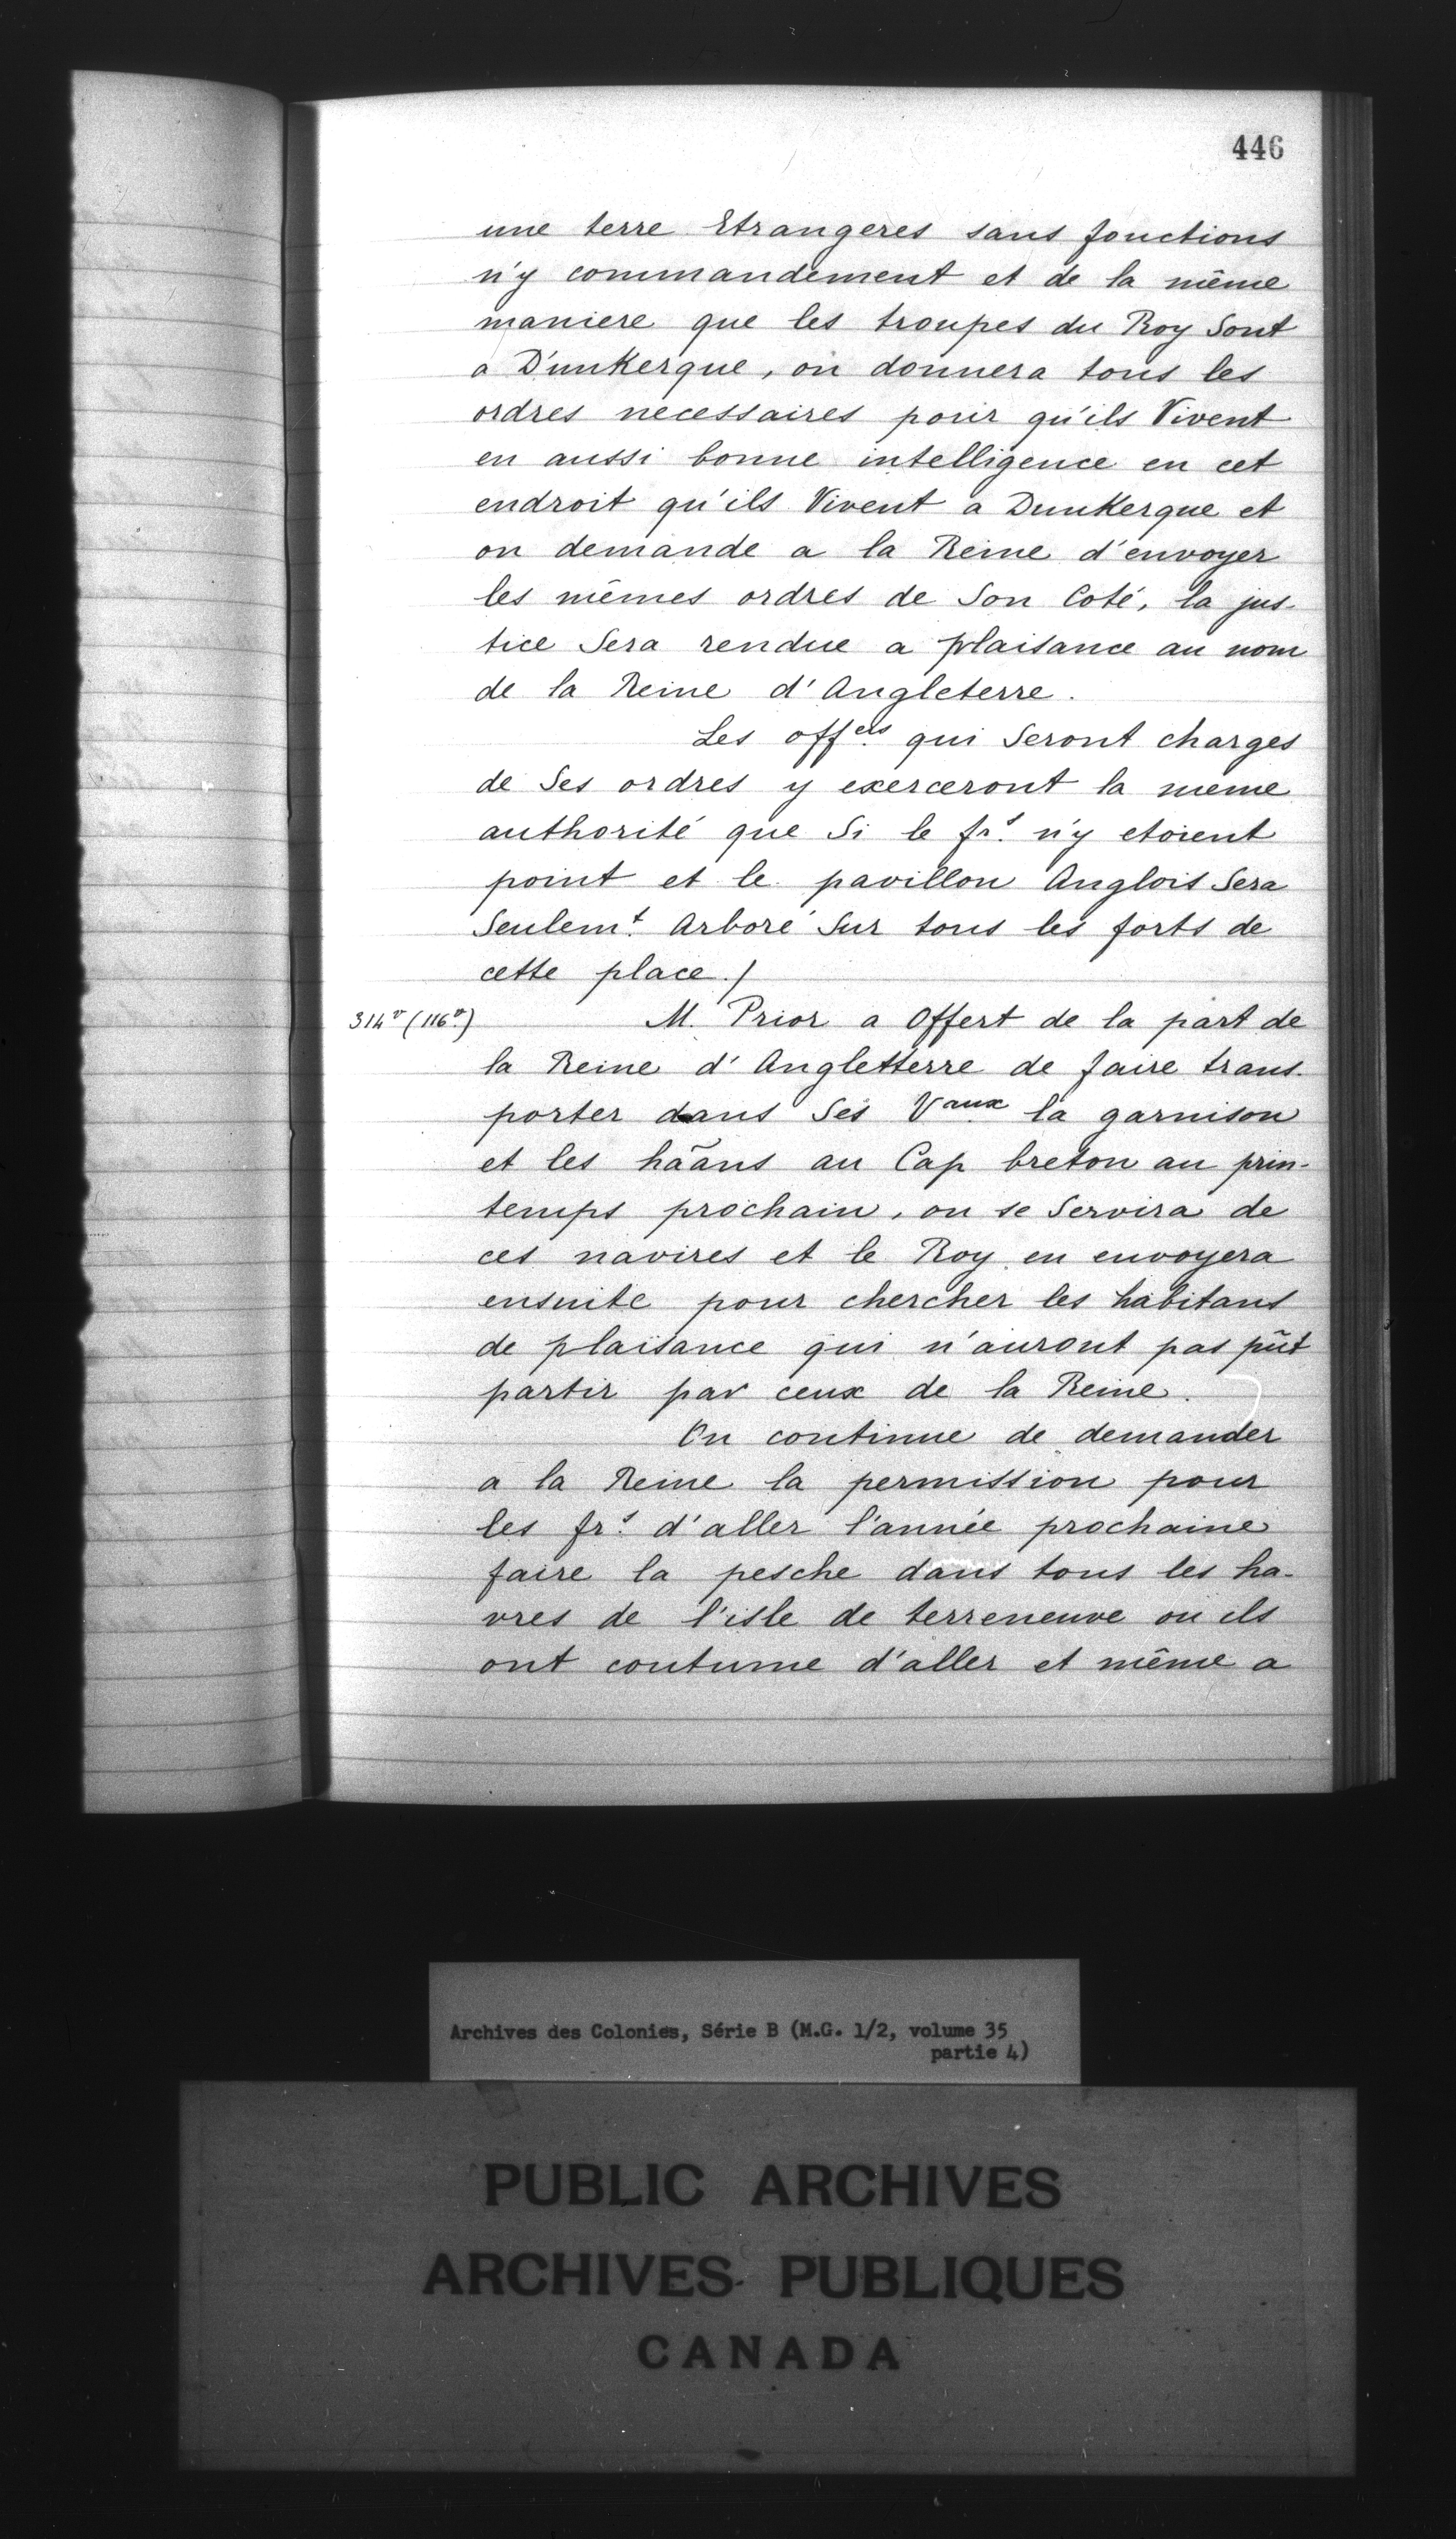 446
une terre Etrangeres sans fonctions
n'y commandement et de la même
maniere que les troupes du Roy Sont
a D'unKerque, on donnera tous les
ordres necessaires pour qu'ils Vivent
en aussi bonne intelligence en cet
endroit qu'ils Vivent a DunKerque et
on demande a la Reine d'envoyer
les mêmes ordres de Son Coté, la jus-
tice Sera rendue a plaisance au nom
de la Reine d'Angleterre.
Les offers qui Seront charges
de Ses ordres y exerceront la meme
authorité que Si le frs n'y etoient
point et le pavillon Anglois Sera
Seulemt Arboré Sur tous les forts de
cette place./
314v (116v) M. Prior a Offert de la part de
la Reine d'Angletterre de faire trans-
porter dans Ses Vaux la garnison
et les hãans au Cap breton au prin-
temps prochain, on se Servira de
ces navires et le Roy en envoyera
ensuite pour chercher les habitans
de plaisance qui n'auront pas pût
partir par ceux de la Reine.
On continue de demander
a la Reine la permission pour
les frs d'aller l'année prochaine
faire la pesche dans tous les ha-
vres de l'isle de terreneuve ou ils
ont coutume d'aller et même a
Archives des Colonies, Série B (M.G. 1/2, volume 35
partie 4)
PUBLIC ARCHIVES
ARCHIVES PUBLIQUES
CANADA